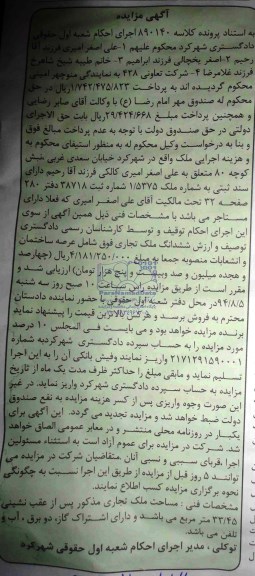 آگهی مزایده
به استناد پرونده کلاسه ۸۹۰۱۴۰ اجرای احکام شعبه اول حقوقی
دادگستری شهرکرد محکوم علیهم ۱-علی اصغر امیری فرزند آقا
رحیم ۲-اصغر یخچالی فرزند ابراهیم ۳- خانم طیبه شیخ شاهرخ
فرزند غلامرضا ۴- شرکت تعاونی ۴۲۸ به نمایندگی منوچهر امینی
محکوم گردیده اند به پرداخت ۱/۷۴۲/۴۷۵/۸۲۳ریال در حق
محکوم له صندوق مهر امام رضا (ع) با وکالت آقای صابر رضایی
و همچنین پرداخت مبلغ ۲۹/۴۲۴/۶۶۸ریال بابت حق الاجرای
دولتی در حق صندوق دولت با توجه به عدم پرداخت مبالغ فوق
و بنا به درخواست وکیل محکوم له به منظور استیفای محکوم به
و هزینه اجرایی ملک واقع در شهرکرد خیابان سعدی غربی نبش
کوچه ۸۰ متعلق به علی اصغر امیری کالکی فرزند آقا رحیم دارای
سند ثبتی به شماره ملک ۱/۵۳۷۵ شماره ثبت ۳۸۷۱۸ دفتر ۲۸۰
صفحه ۳۲ تحت مالکیت آقای علی اصغر امیری که فعلا دارای
مستاجر می باشد با مشخصات فنی ذیل همین آگهی از سوی
این اجرای احکام توقیف و توسط کارشناسان رسمی دادگستری
توصیف و ارزش ششدانگ ملک تجاری فوق شامل عرصه ساختمان
و انشعابات منصوبه جمعا به مبلغ ۴/۱۸۱/۲۵۰/۰۰۰ریال (چهارصد
و هجده میلیون و صد و پنج هزار تومان) ارزیابی شد و
مقرر است از طریق مزایده راس ساعت ۱۰ صبح روز سه شنبه
۹۴/۸/۵در محل دفتر شعبه اول حقوقی با حضور نماینده دادستان
محترم به فروش برسد و هرکس بالاترین قیمت را پیشنهاد نماید
برنده مزایده خواهد بود و می بایست فی المجلس ۱۰ درصد
مورد مزایده را به حساب سپرده دادگستری شهرکردبه شماره
۲۱۷۱۲۹۱۵۹۰۰۱ واریز نمایند وفیش بانکی آن را به این اجرا
تسلیم نماید و مابقی مبلغ را حداکثر ظرف مدت یک ماه از تاریخ
مزایده به حساب سپرده دادگستری شهرکرد واریز نماید. در غیر
این صورت وجوه واریزی پس از کسر هزینه مزایده به نفع صندوق
دولت ضبط خواهد شد و مزایده تجدید می گردد. این آگهی برای
یکبار در روزنامه محلی منتشر و در معابر عمومی الصاق خواهد
شد. شرکت در مزایده برای عموم آزاد است به استثناء مسئولین
اجرا ،قربای سببی و نسبی آنان .متقاضیان شرکت در مزایده می
توانند ۵ روز قبل از مزایده از طریق این اجرا نسبت به چگونگی
نحوه برگزاری مزایده کسب اطلاع نمایند.
مشخصات فنی : مساحت ملک تجاری مذکور پس از عقب نشینی
۳۳/۴۵ متر مربع می باشد و دارای اشتراک گاز، دو برق ، آب و
تلفن می باشد.
توکلی ، مدیر اجرای احکام شعبه اول حقوقی شهرکرد